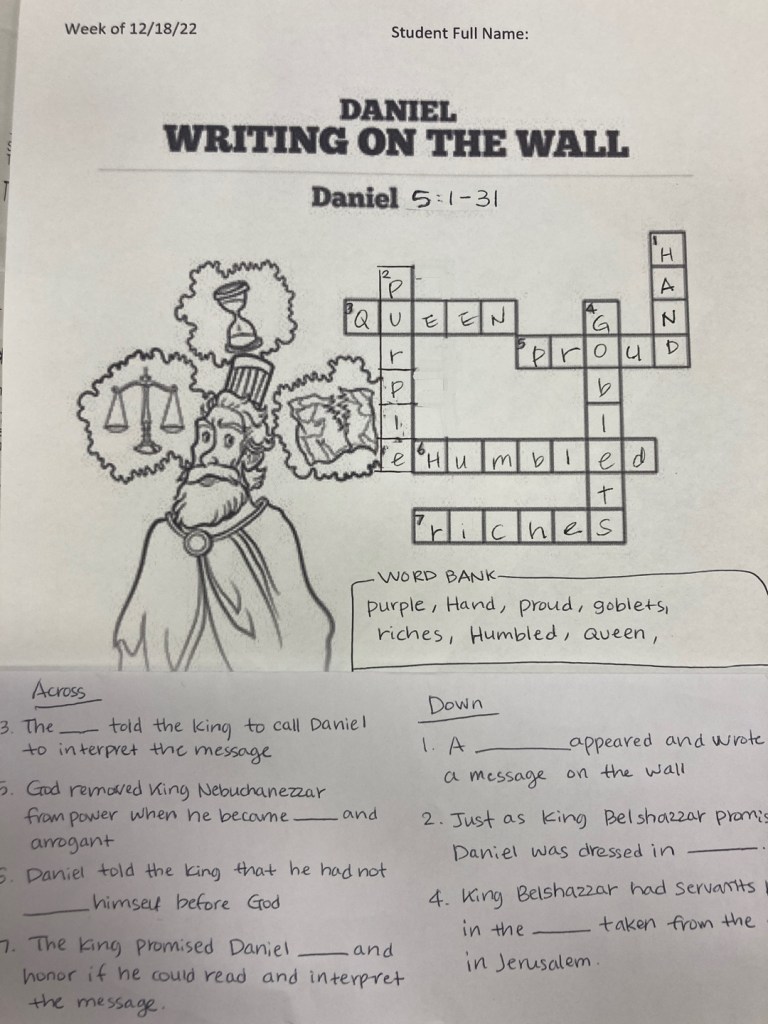 Week of 12/18/22
Student Full Name:
DANIEL
WRITING ON THE WALL
Daniel 5:1-31
1 HAND
2 Purple
3 QUEEN
4 Goblets
5 Proud
6 Humbled
7 riches
WORD BANK
purple, Hand, proud, goblets,
riches, Humbled, Queen,
Across
3. The ___ told the king to call Daniel
to interpret the message
5. God removed King Nebuchanezzar
from power when he became ___ and
arrogant
6. Daniel told the king that he had not
___ himself before God
7. The king promised Daniel ___ and
honor if he could read and interpret
the message.
Down
1. A ___ appeared and wrote
a message on the wall
2. Just as King Belshazzar promis
Daniel was dressed in ___.
4. King Belshazzar had servants
in the ___ taken from the
in Jerusalem.